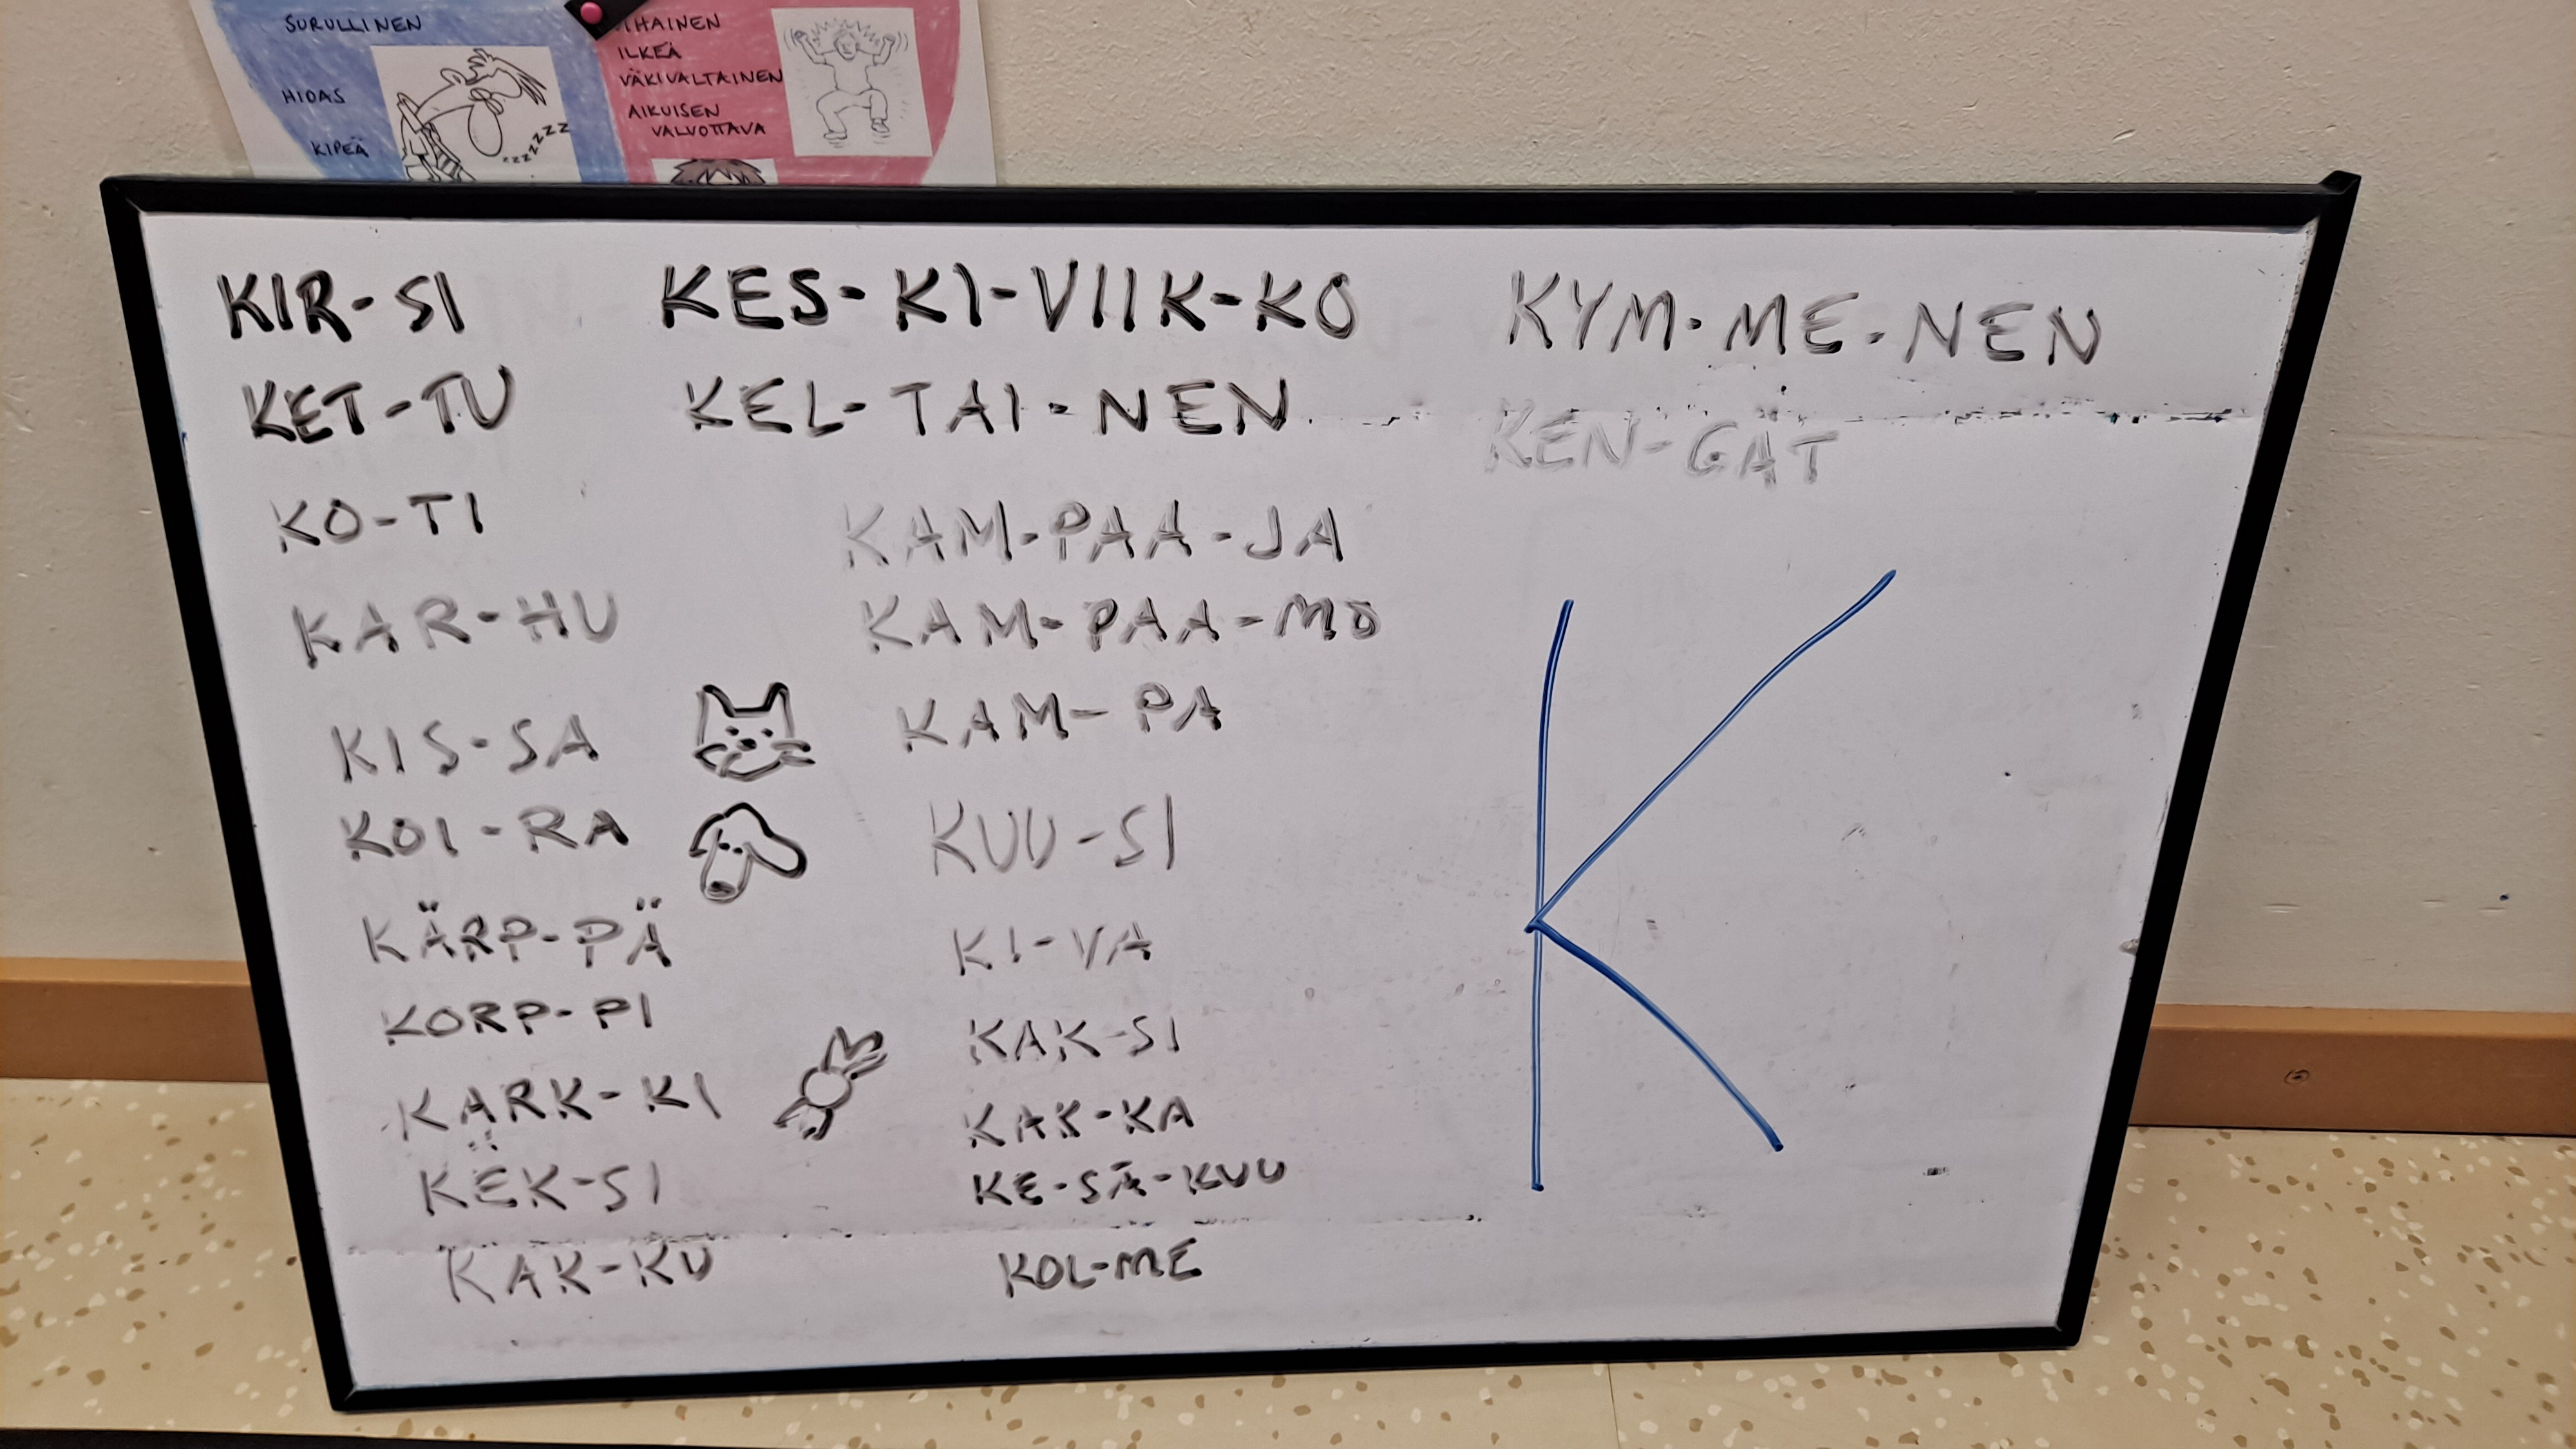 SURULLINEN
HIDAS
KIPEÄ
zzzzzzz
IHAINEN
ILKEÄ
VÄKIVALTAINEN
AIKUISEN
VALVOTTAVA
KIR-SI
KET-TU
KO-TI
KAR-HU
KIS-SA
KOI-RA
KÄRP-PÄ
KORP-PI
KÄRK-KI
KEK-SI
KAK-KU
KES-KI-VIIK-KO
KEL-TAI-NEN
KAM-PAA-JA
KAM-PAA-MO
KAM-PA
KUU-SI
KI-VA
KAK-SI
KAK-KA
KE-SÄ-KUU
KOL-ME
KYM-ME-NEN
KEN-GÄT
K